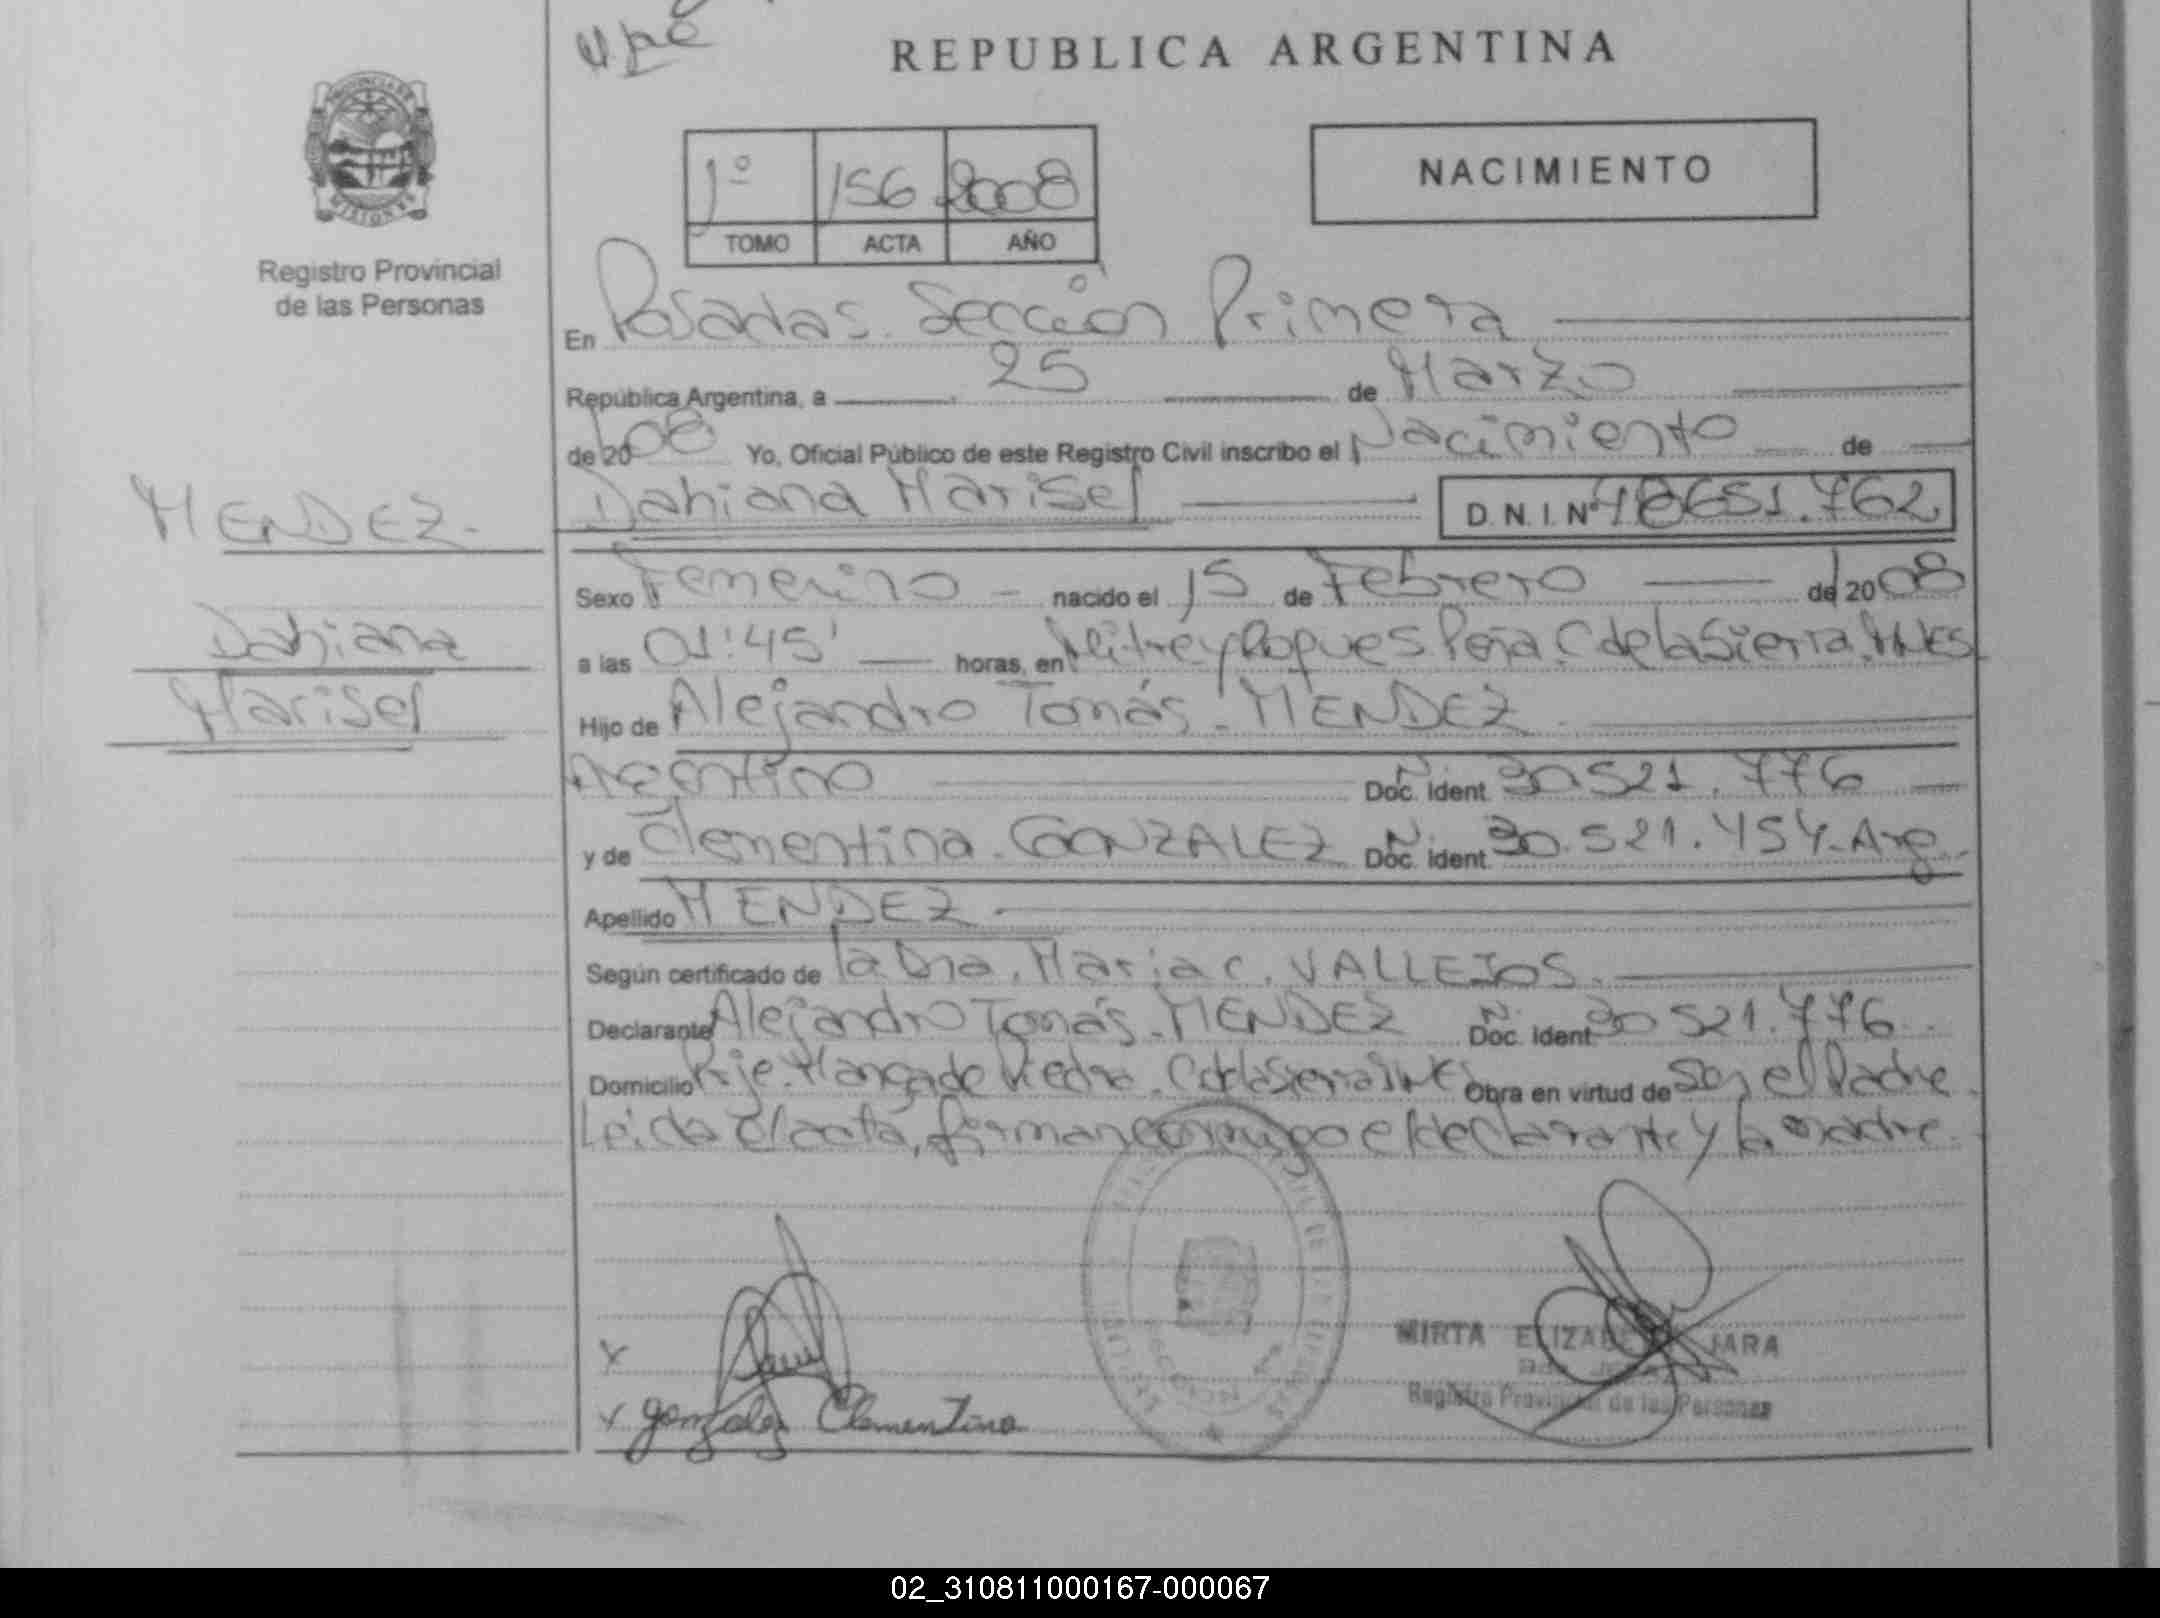 REPUBLICA ARGENTINA
PROVINCIA DE
MISIONES
Registro Provincial
de las Personas
1º 156 2008
TOMO ACTA AÑO
NACIMIENTO
En Posadas. Sección Primera
República Argentina, a 25 de Marzo
de 2008 Yo, Oficial Público de este Registro Civil inscribo el Nacimiento de
Dahiana Marisel D.N.I. Nº 48651.762
MENDEZ
Dahiana
Marisel
Sexo Femenino nacido el 15 de Febrero de 2008
a las 01:45' horas, en Mitre y Roques Peña C de la Sierra. MNES
Hijo de Alejandro Tomás MENDEZ
Argentino Doc. Ident. N. 30.521.776
y de Clementina GONZALEZ Doc. Ident. N. 30.521.454. Arg.
Apellido MENDEZ
Según certificado de la Dra. Maria C. VALLEJOS.
Declarante Alejandro Tomás MENDEZ Doc. Ident. N. 30521.776
Domicilio Pje. de Piedra. C de la Sierra Obra en virtud de Ser el Padre
Leida el acta, firman conmigo el declarante y la madre
x
x Gonzalez Clementina
MIRTA JARA
Registro Provincial de las Personas
02_310811000167-000067